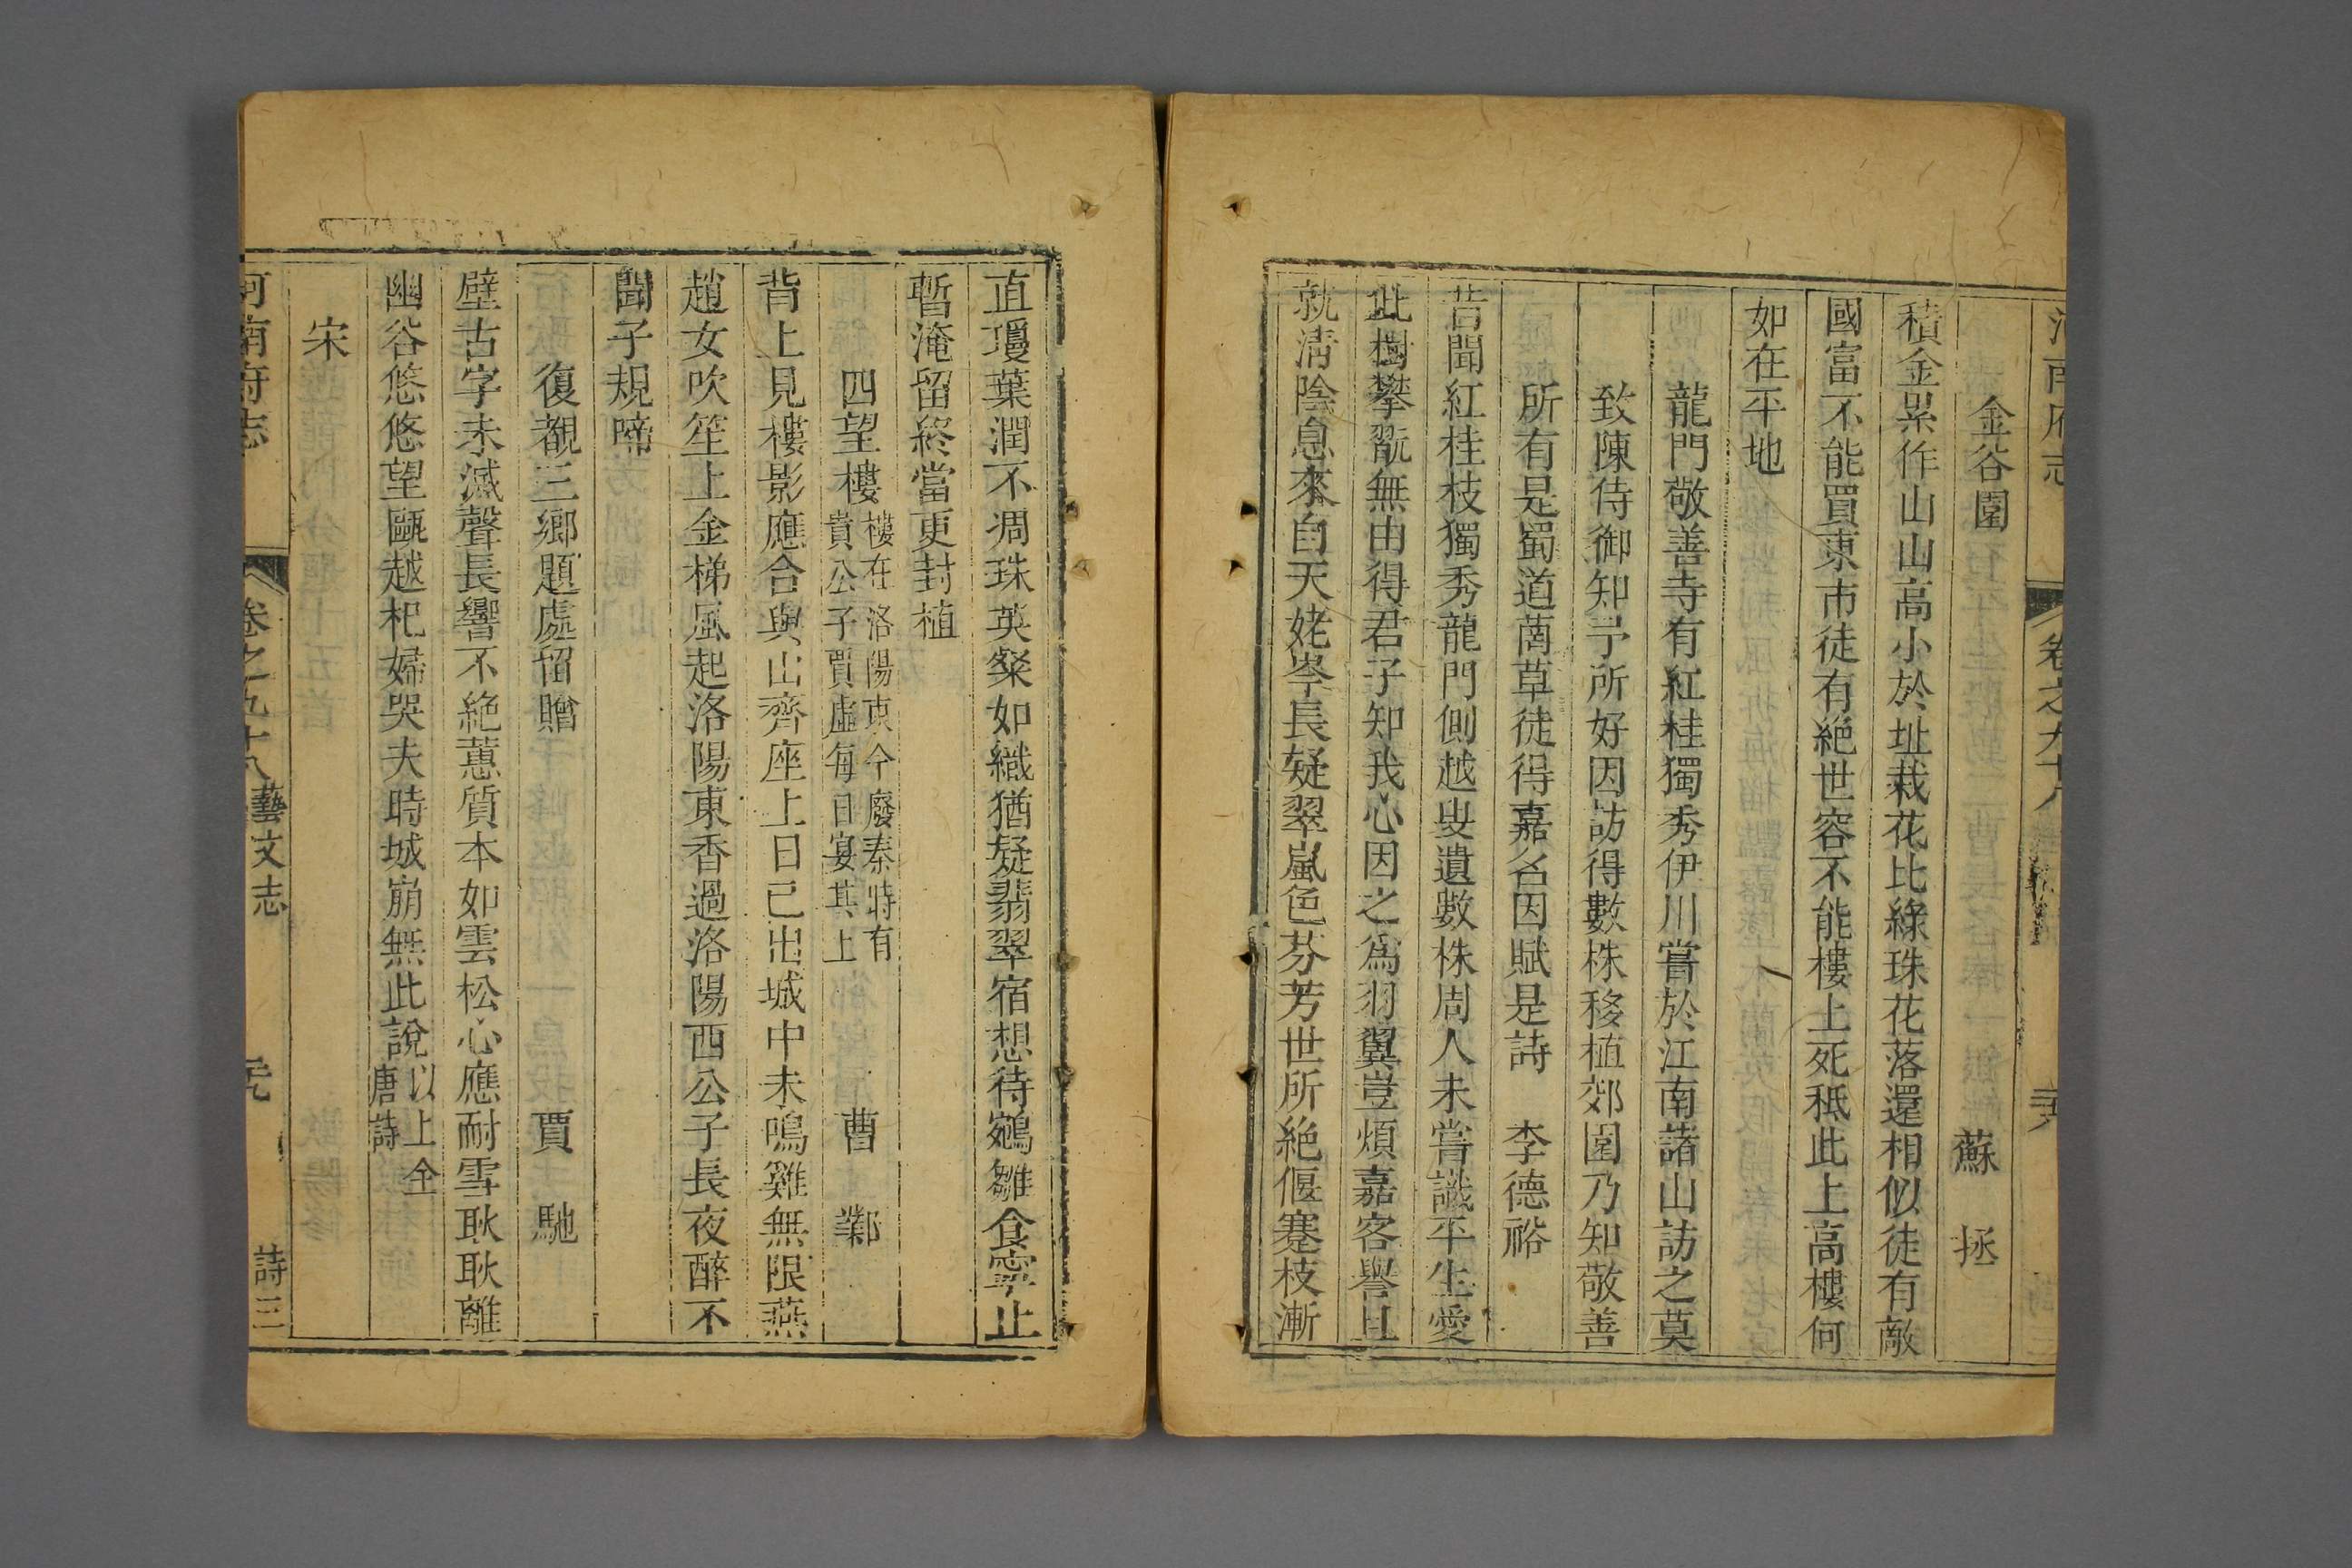 河南府志 卷之九十八
金谷園 蘇 拯
積金累作山山高小於址栽花比綠珠花落還相似徒有敵
國富不能買東市徒有絕世容不能樓上死秪此上高樓何
如在平地
龍門敬善寺有紅桂獨秀伊川嘗於江南諸山訪之莫
致陳侍御知予所好因訪得數株移植郊園乃知敬善
所有是蜀道菌草徒得嘉名因賦是詩 李德裕
昔聞紅桂枝獨秀龍門側越叟遺數株周人未嘗識平生愛
此樹攀翫無由得君子知我心因之為羽翼豈煩嘉客譽且
就清陰息來自天姥岑長疑翠嵐色芬芳世所絕偃蹇枝漸
直瓊葉潤不凋珠英粲如織猶疑翡翠宿想待鵷雛食寧止
暫淹留終當更封植
四望樓 樓在洛陽東今廢秦時有
貴公子賈虛每日宴其上 曹 鄴
背上見樓影應合與山齊座上日已出城中未鳴雞無限燕
趙女吹笙上金梯風起洛陽東香過洛陽西公子長夜醉不
聞子規啼
復覩三鄉題處留贈 賈 馳
壁古字未滅聲長響不絕蕙質本如雲松心應耐雪耿耿離
幽谷悠悠望甌越杞婦哭夫時城崩無此說 以上全
唐詩
宋
河南府志 卷之九十八 藝文志 詩三